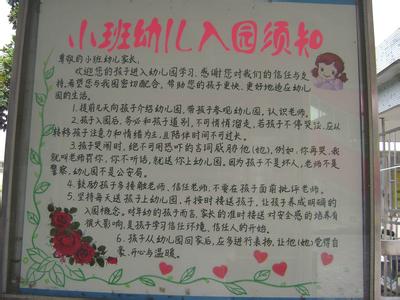 小班幼儿入园须知
尊敬的小班幼儿家长:
欢迎您的孩子进入幼儿园学习,感谢您对我们的信任与支
持。希望您与我园密切配合,帮助您的孩子更快、更好地适应幼
儿园的生活。
1.提前几天向孩子介绍幼儿园,带孩子参观幼儿园,认识老师。
2.孩子入园后,务必和孩子道别,不可悄悄溜走,若孩子不停哭泣,应以
转移孩子注意力和情绪为主,且陪伴时间不可过长。
3.孩子哭闹时,绝不可用恐吓的言词威胁他(她),例如:你再哭,我
就叫老师罚你,你不听话,就送你上幼儿园。因为孩子不是坏人,老师不是
警察,幼儿园不是公安局。
4.鼓励孩子多接触老师,信任老师,不要在孩子面前批评老师。
5.坚持每天送孩子上幼儿园,并按时接送孩子,让孩子养成明确的
入园概念。对年幼的孩子而言,家长的准时接送对安全感的培养有
很大影响,是孩子学习信任环境、信任人的开始。
6.孩子从幼儿园回家后,应多进行表扬,让他(她)觉得自
豪、开心与温暖。